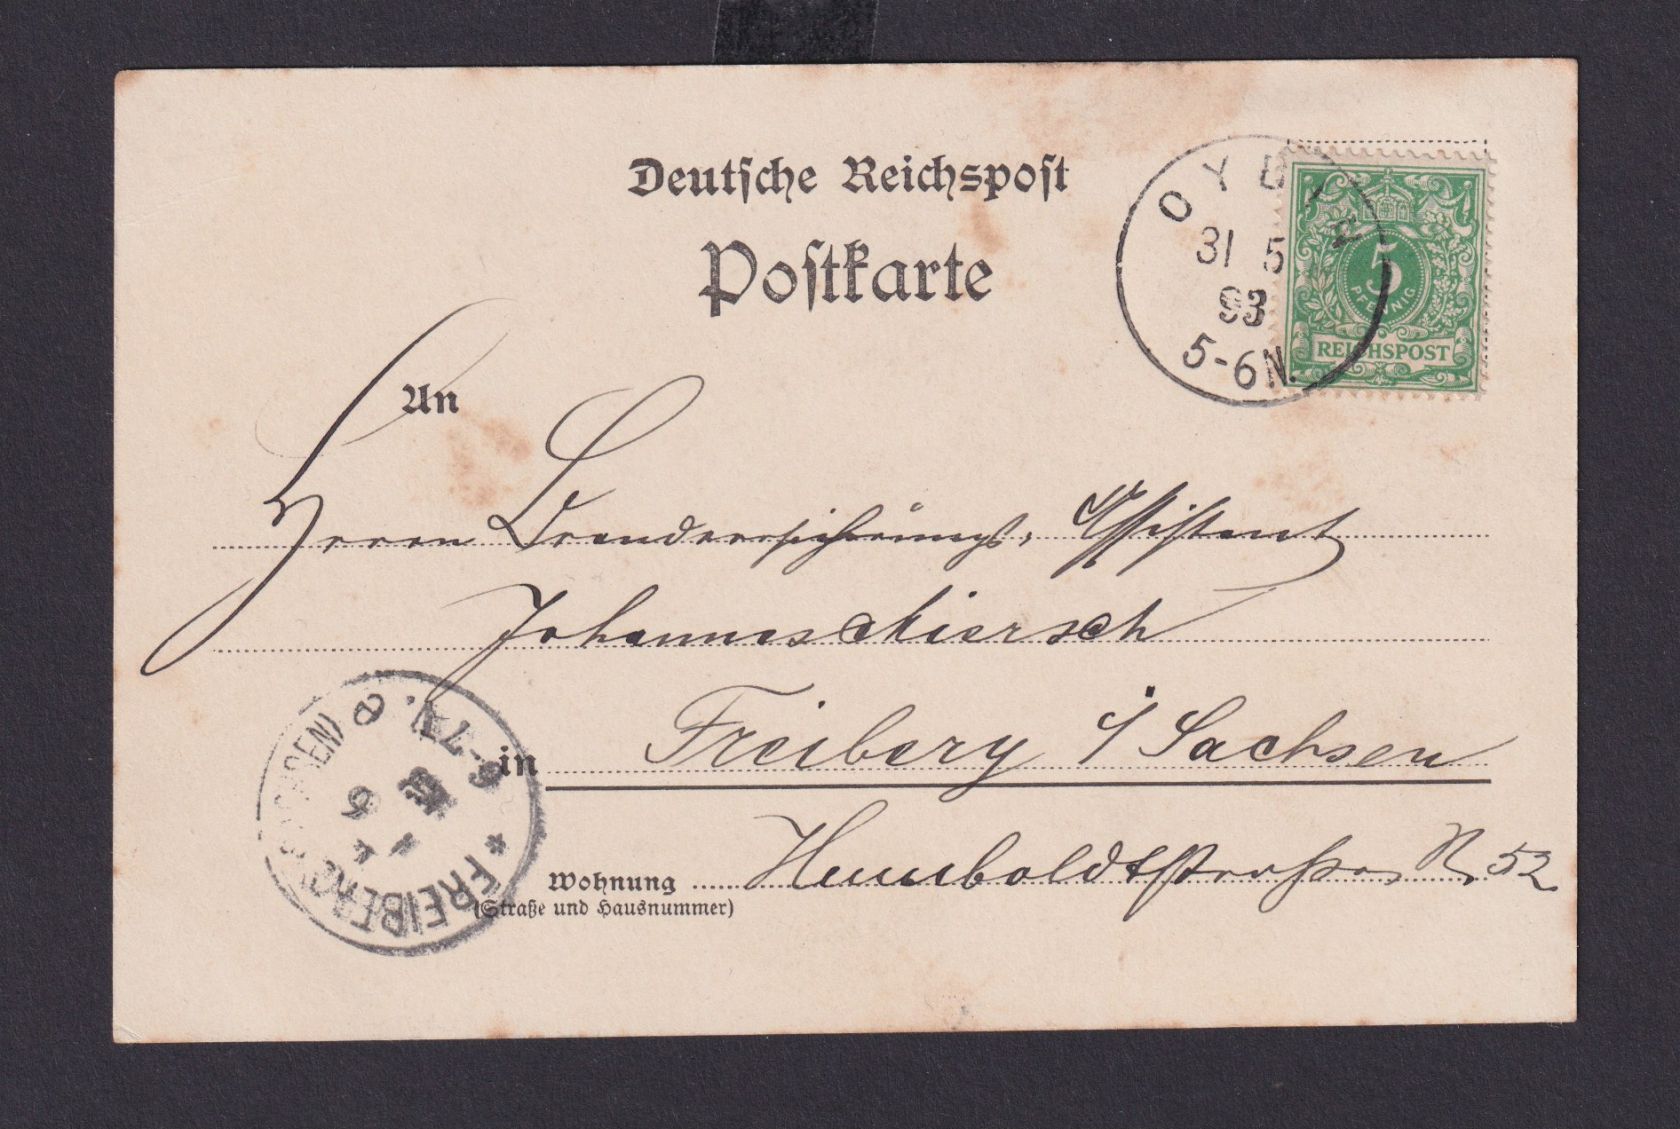 Deutsche Reichspost
Postkarte
OYBIN
31 5
93
5-6N.
5
PFENNIG
REICHSPOST
An
Herrn Brandversicherungs-Assistent
Johannes Kiersch
in Freiberg i/Sachsen
Wohnung Humboldtstrasse N. 52
(Straße und Hausnummer)
* FREIBERG (SACHSEN)
6-7N.